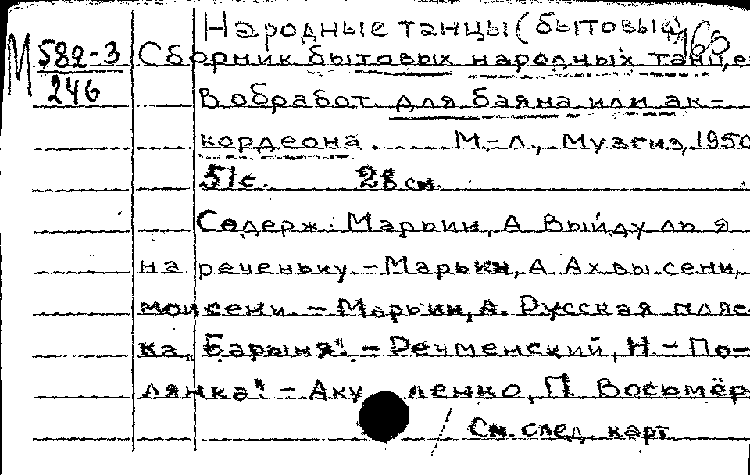 Народные танцы (бытовые)
М 582-3 Сборник бытовых народных танце
246
В обработ. для баяна или ак-
кордеона. М-Л., Музгиз, 1950
51с. 28 см.
Содерж: Марьин, А Выйду ль я
на реченьку. - Марьин, А Ах вы сени,
мои сени. - Марьин, А. Русская пляс
ка "Барыня". - Речменский, Н. - По-
лянка". - Аку ленко, П Восьмёр
См. след. карт